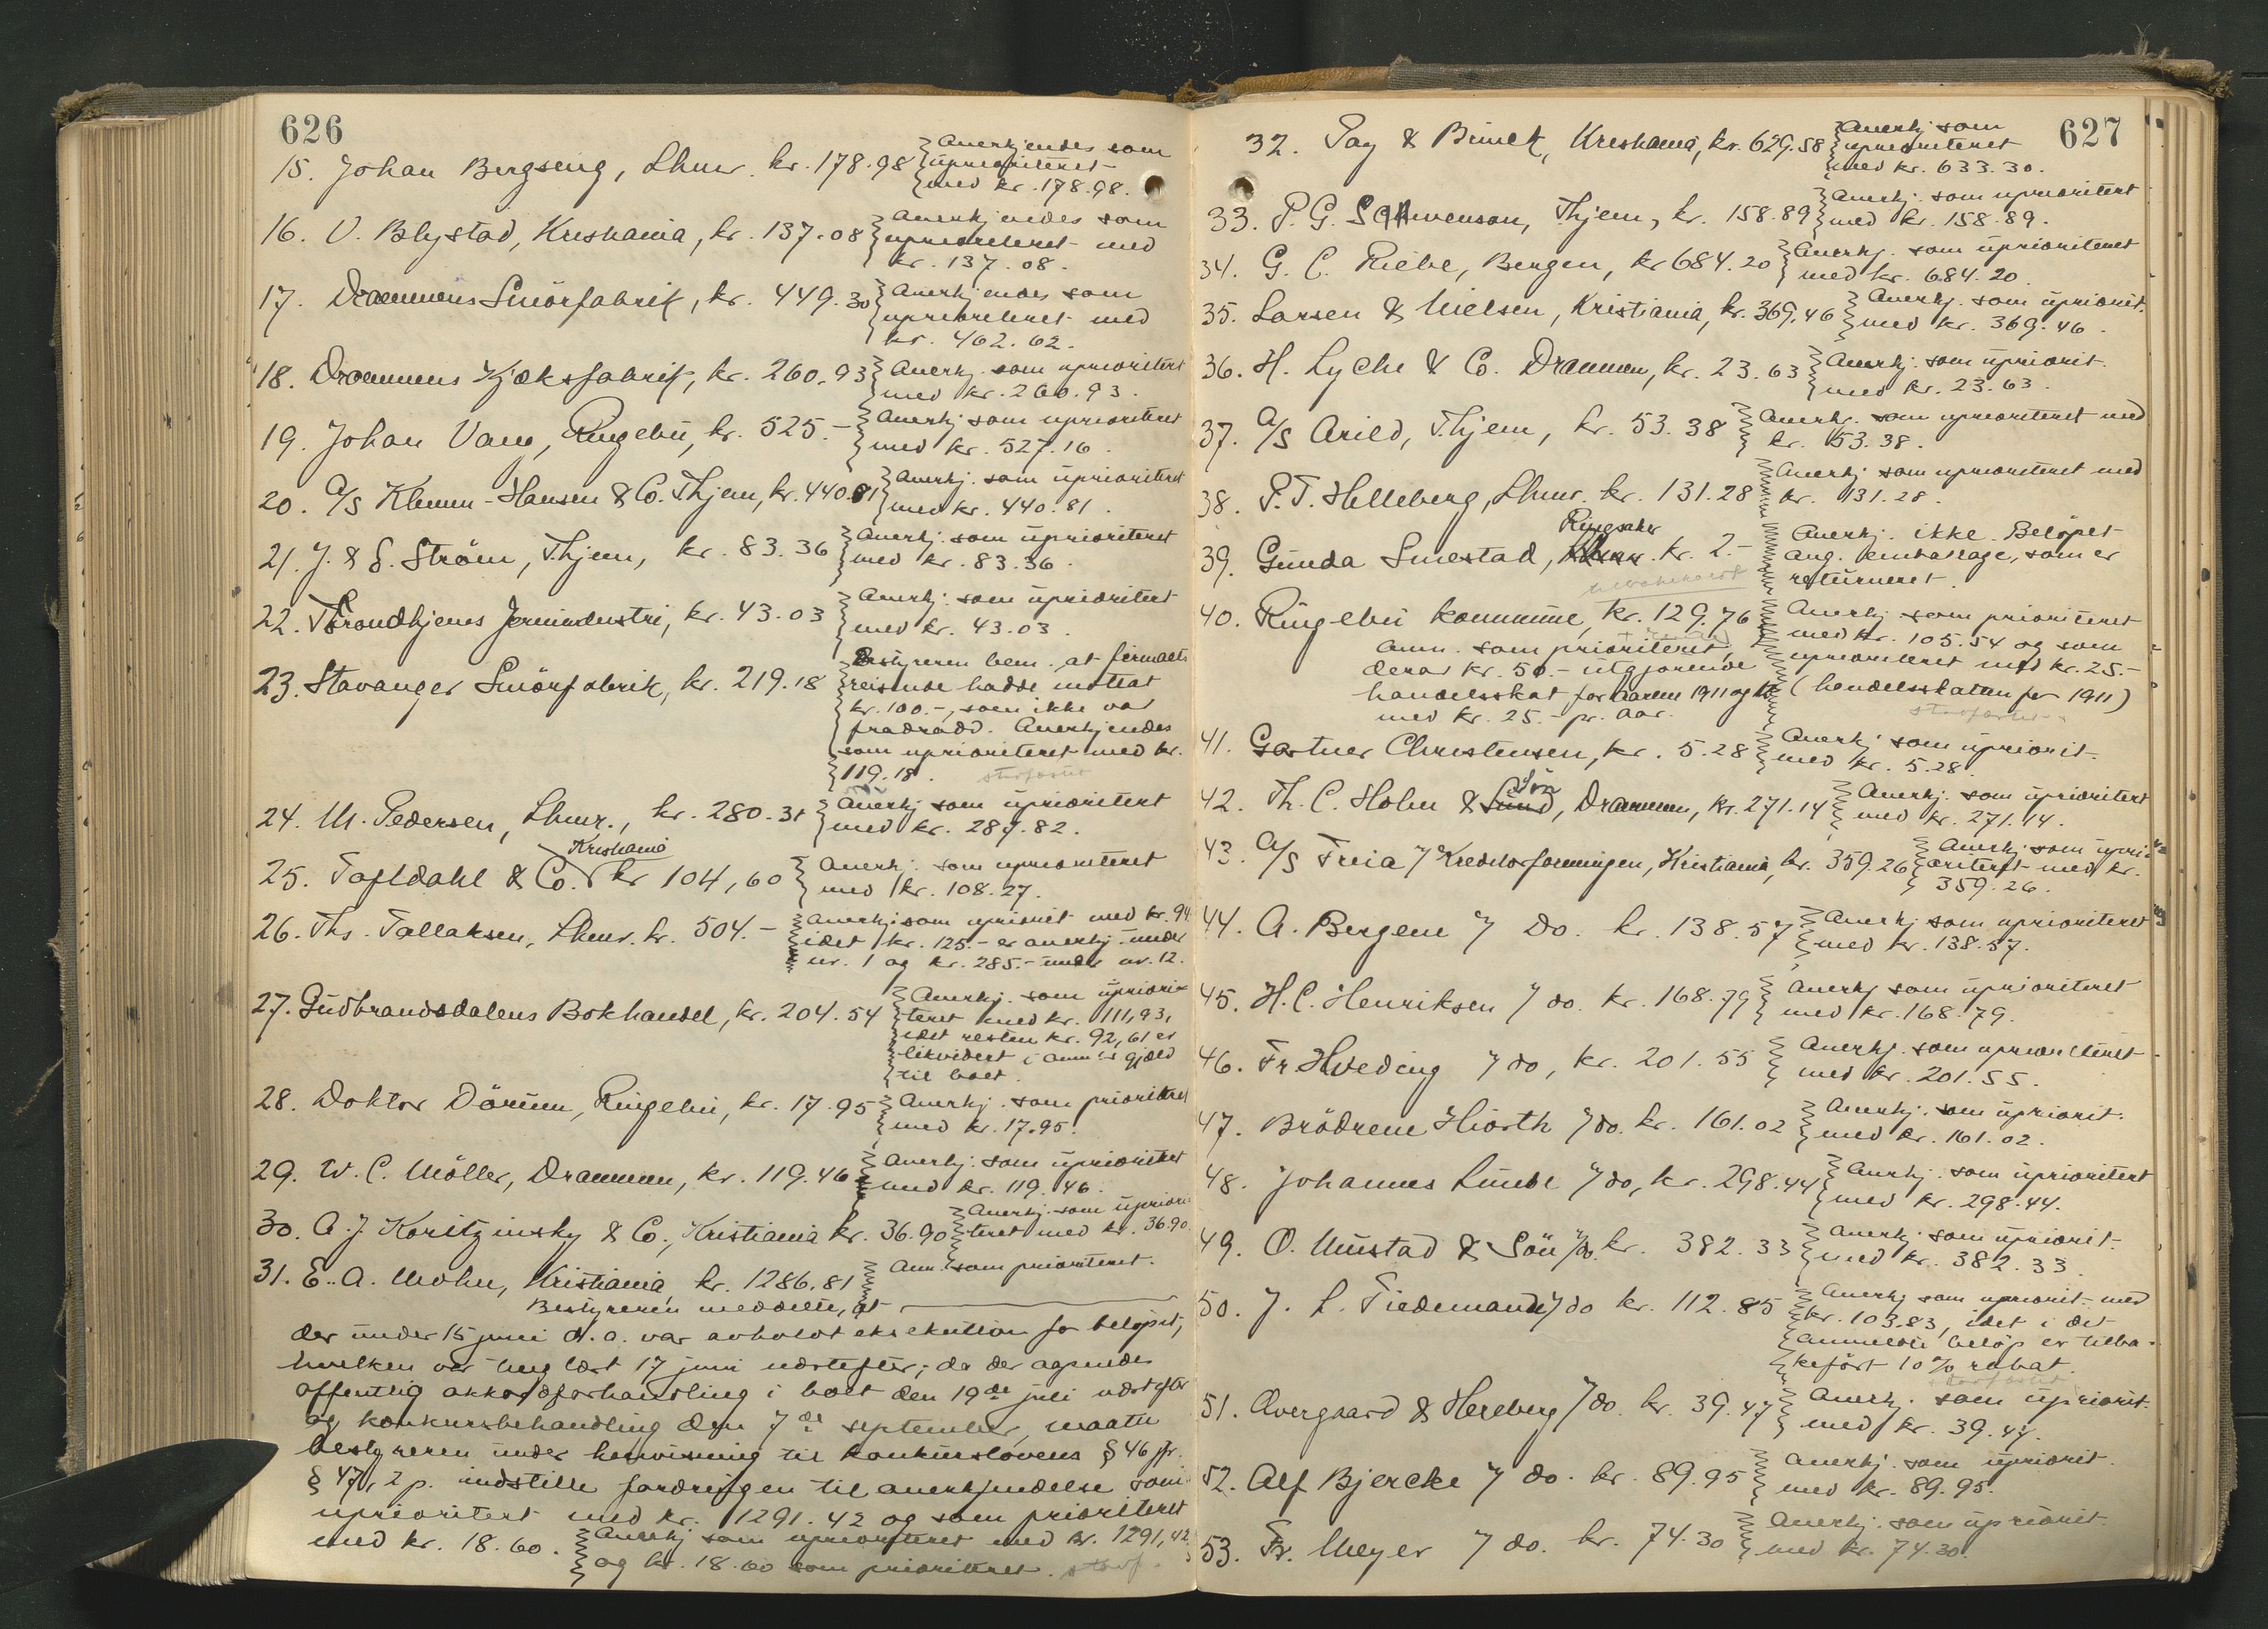 626
15. Johan Bergseng, Lhmr. kr. 178.98 Anerkjendes som
uprioriteret
med kr. 178.98.
16. O. Blystad, Kristiania, kr. 137.08 Anerkjendes som
uprioriteret med
kr. 137.08.
17. Drammens Smörfabrik, kr. 449.30 Anerkjendes som
uprioriteret med
kr. 462.62.
18. Drammens Kjæksfabrik, kr. 260,93 Anerkj. som uprioritert
med kr. 260.93.
19. Johan Vang, Ringebu, kr. 525.- Anerkj. som uprioriteret
med kr. 527.16.
20. A/S Klemm-Hansen & Co. Thjem, kr. 440.81 Anerkj. som uprioriteret
med kr. 440.81.
21. J. & S. Ström, Thjem, kr. 83.36 Anerkj. som uprioriteret
med kr. 83.36.
22. Throndhjems Jernindustri, kr. 43.03 Anerkj. som uprioritert
med kr. 43.03.
23. Stavanger Smörfabrik, kr. 219.18 Bestyreren bem. at firmaets
reisende hadde mottat
kr. 100.-, som ikke var
fradradd. Anerkjendes
som uprioriteret med kr.
119.18. stadfæstet
24. M. Pedersen, Lhmr., kr. 280.31 Anerkj. som uprioritert
med kr. 287.82.
Kristiania
25. Tofldahl & Co. kr 104,60 Anerkj. som uprioriteret
med kr. 108.27.
26. Ths. Tallaksen, Lhmr. kr. 504.- Anerkj. som upriorit. med kr. 94
idet kr. 125.- er anerkj. under
nr. 1 og kr. 285.- under nr. 12.
27. Gudbrandsdalens Bokhandel, kr. 204.54 Anerkj. som upriori-
teret med kr. 111,93,
idet resten kr. 92,61 er
likvidert i ann's gjæld
til boet.
28. Doktor Dörum, Ringebu, kr. 17.95 Anerkj. som prioriteret
med kr. 17.95.
29. W. C. Möller, Drammen, kr. 119.46 Anerkj. som uprioriteret
med kr. 119.46.
30. A. J. Koritzinsky & Co., Kristiania kr. 36.90 Anerkj. som upriori
teret med kr. 36.90.
31. E. A. Mohn, Kristiania, kr. 1286.81 Anm. som prioriteret.
Bestyreren meddelte, at
der under 15 juni d.a. var avholdt eksekution for beløpet,
hvilken var tinglæst 17 juni næstefter; da der aapnedes
offentlig akkordforhandling i boet den 19de juli næstefter
og konkursbehandling den 7de september, maatte
bestyreren under henvisning til konkurslovens § 46 jfr.
§ 47, 2 p. indstille fordringen til anerkjendelse som
uprioritert med kr. 1291.42 og som prioriteret
med kr. 18.60. Anerkj. som uprioriteret med kr. 1291,42
og kr. 18.60 som prioriteret. stadf.
627
32. Pay & Brinck, Kristiania, kr. 629.58 Anerkj. som
uprioriteret
med kr. 633.30.
33. P. G. Schwenson, Thjem, kr. 158.89 Anerkj. som uprioritert
med kr. 158.89.
34. G. C. Rieber, Bergen, kr 684.20 Anerkj. som uprioriteret
med kr. 684.20.
35. Larsen & Nielsen, Kristiania, kr. 369,46 Anerkj. som upriorit.
med kr. 369.46.
36. H. Lyche & Co. Drammen, kr. 23.63 Anerkj. som upriorit.
med kr. 23.63.
37. A/S Arild, Thjem, kr. 53.38 Anerkj. som uprioriteret med
kr. 53.38.
38. P. T. Helleberg, Lhmr. kr. 131.28 Anerkj. som uprioriteret med
kr. 131.28.
Ringsaker
39. Gunda Smestad, Lhmr. kr. 2.- Anerkj. ikke. Beløpet
ang. emballage, som er
returneret.
40. Ringebu kommune, kr. 129.76 Anerkj. som prioriteret
med kr. 105.54 og som
Anm. som prioriteret, uprioriteret med kr. 25.-
derav kr. 50.- utgjørende (handelsskatten for 1911)
handelsskat for aarene 1911 og 12
med kr. 25.- pr. aar. stadfæstet
41. Gartner Christensen, kr. 5.28 Anerkj. som upriorit.
med kr. 5.28.
Sön
42. Th. C. Holm & Lund, Drammen, kr. 271.14 Anerkj. som uprioritert
med kr. 271.14.
43. A/S Freia v/ Kreditorforeningen, Kristiania, kr. 359.26 Anerkj. som upri-
oriteret med kr.
359.26.
44. A. Bergene v/ do. kr. 138.57 Anerkj. som uprioriteret
med kr. 138.57.
45. H. C. Henriksen v/ do. kr. 168.79 Anerkj. som uprioriteret
med kr. 168.79.
46. Fr. Hveding v/ do, kr. 201.55 Anerkj. som uprioriteret
med kr. 201.55.
47. Brödrene Hiorth v/ do. kr. 161.02 Anerkj. som upriorit.
med kr. 161.02.
48. Johannes Lunde v/ do, kr. 298.44 Anerkj. som uprioritert
med kr. 298.44.
49. O. Mustad & Sön v/ do kr. 382.33 Anerkj. som upriorit.
med kr. 382.33.
50. J. L. Tiedemand v/ do kr. 112.85 Anerkj. som upriorit. med
kr. 103.83, idet i det
anmeldte beløp er tilba-
keført 10% rabat.
stadfæstet
51. Overgaard & Hereberg v/ do. kr. 39.47 Anerkj. som upriorit.
med kr. 39.47.
52. Alf Bjercke v/ do. kr. 89.95 Anerkj. som upriorit.
med kr. 89.95.
53. Fr. Meyer v/ do. kr. 74.30 Anerkj. som upriorit.
med kr. 74.30.